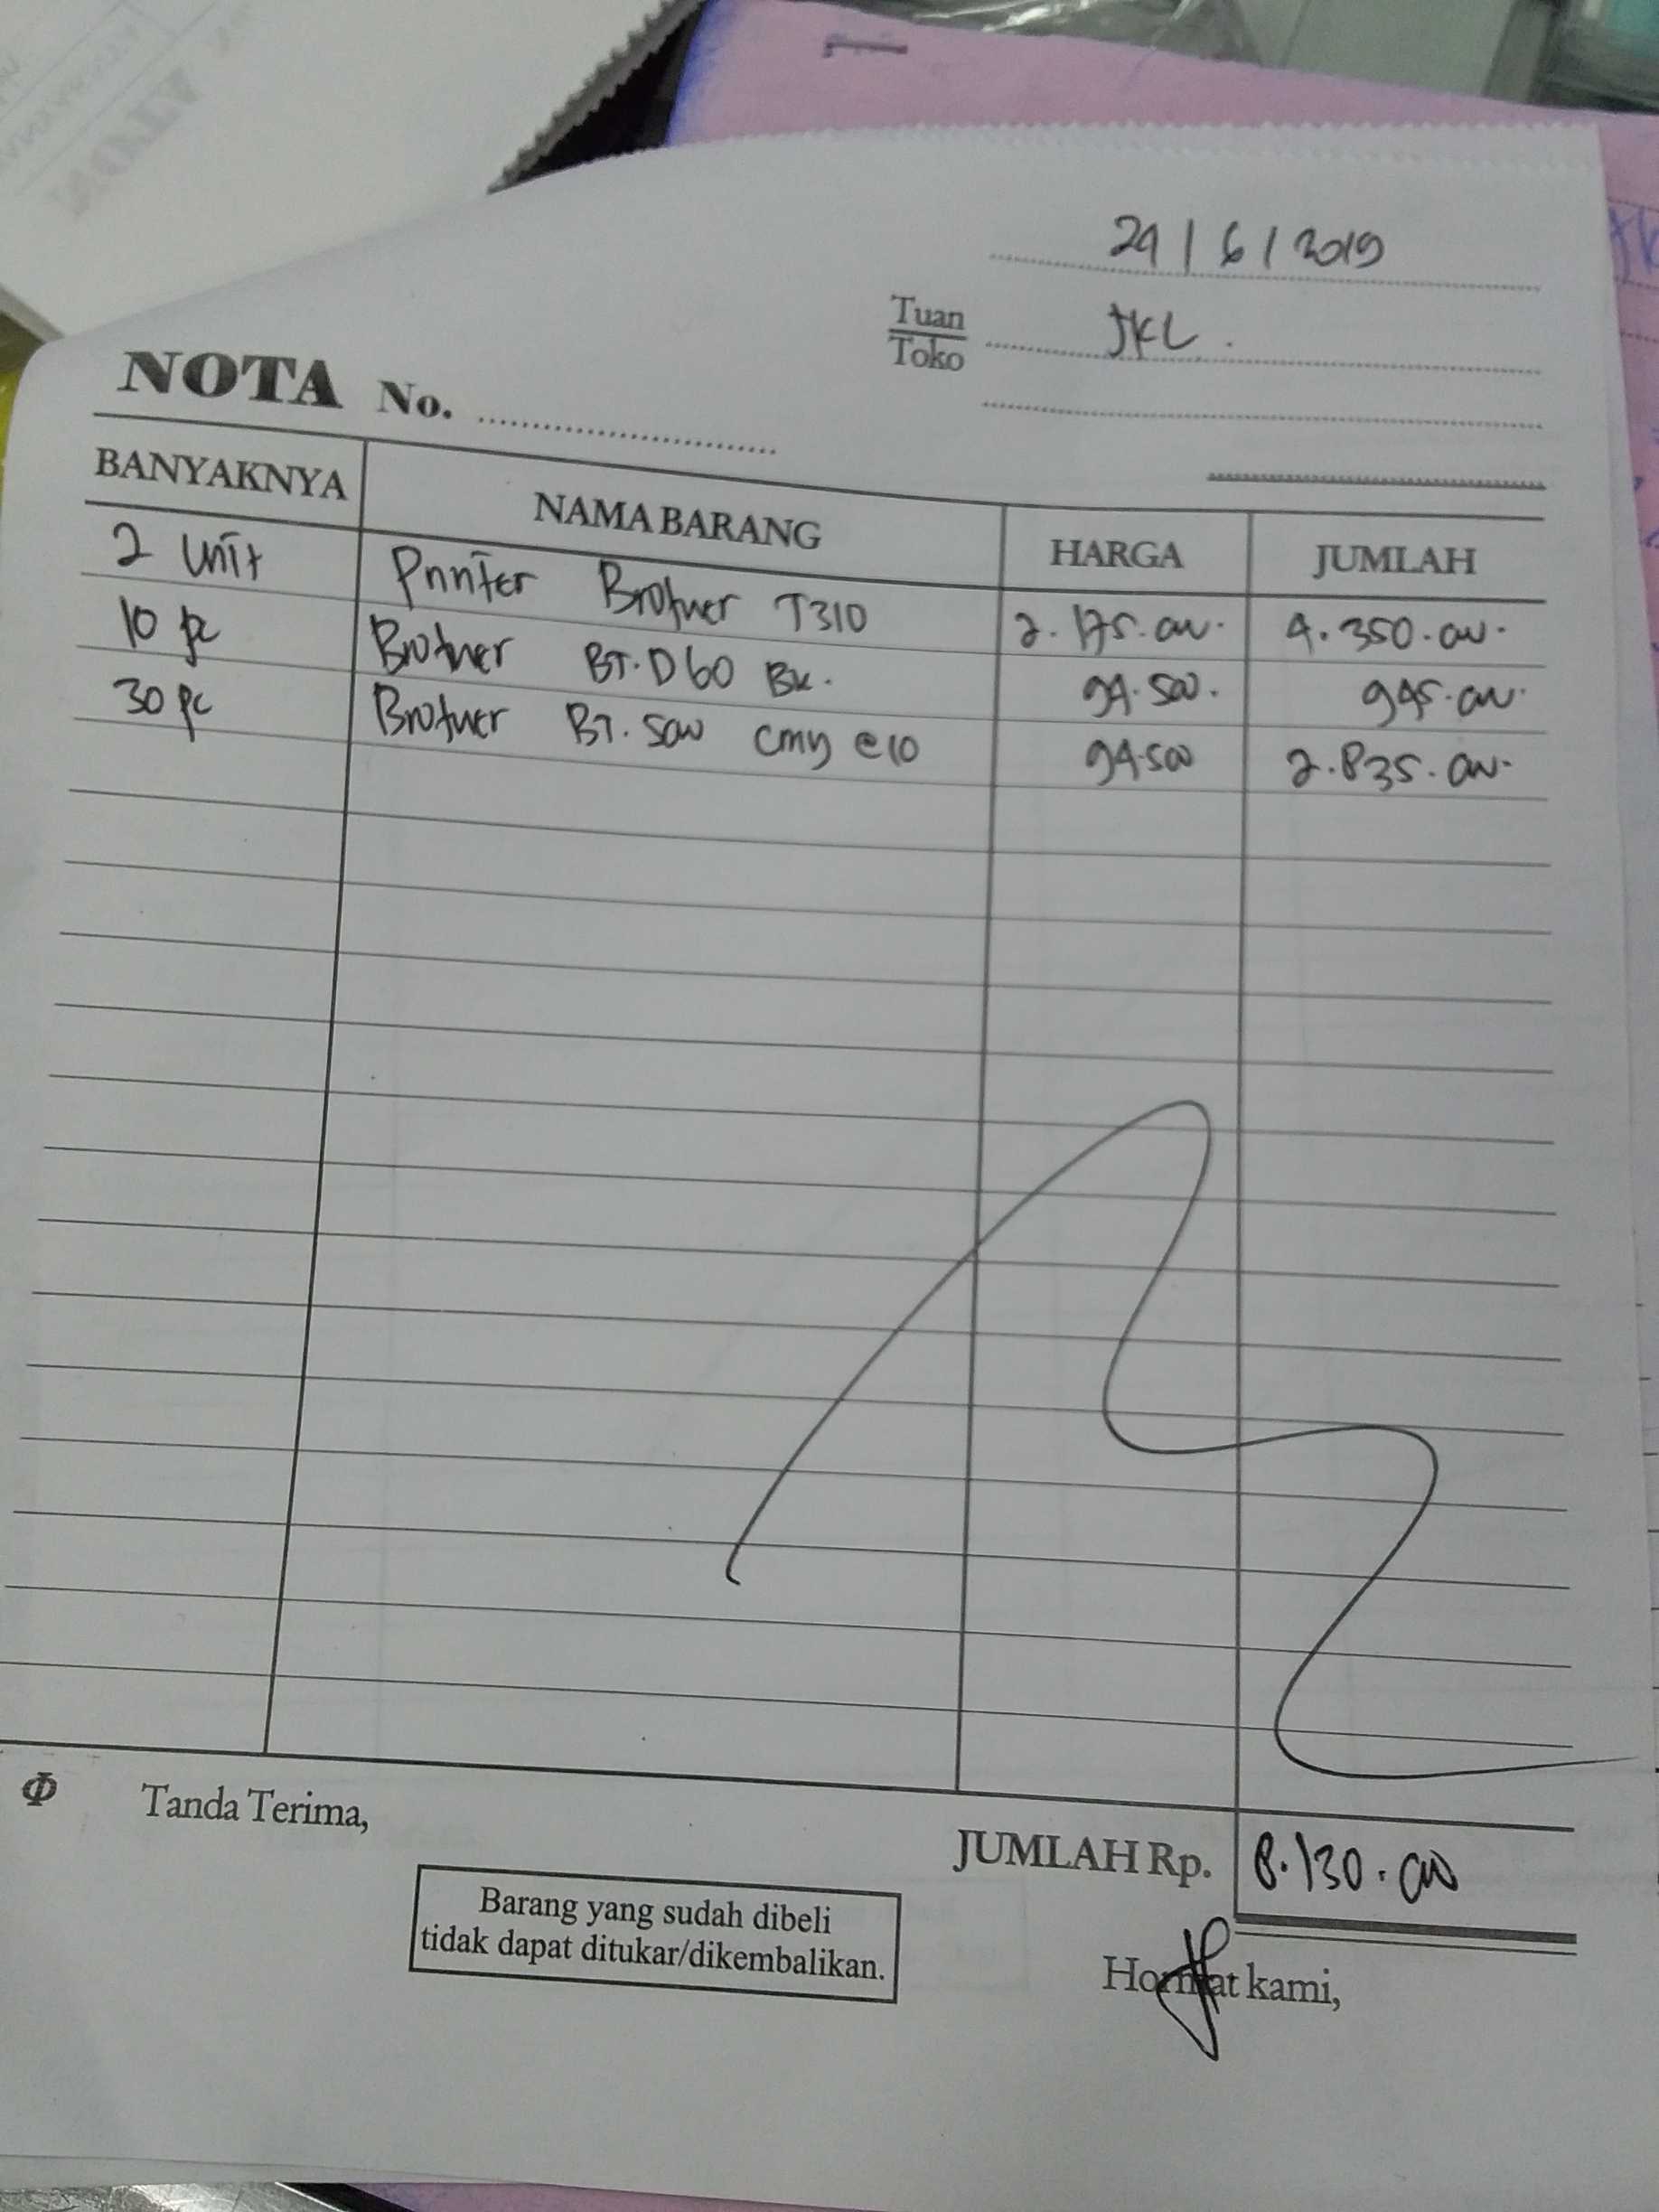 24 / 6 / 2019
Tuan
Toko
JKL.
NOTA No.
BANYAKNYA NAMA BARANG HARGA JUMLAH
2 Unit Printer Brother T310 2.175.000. 4.350.000.
10 pc Brother BT.D60 BK. 94.500. 945.000
30 pc Brother BT.5000 cmy @10 94.500 2.835.000.
Φ Tanda Terima,
JUMLAH Rp. 8.130.000
Barang yang sudah dibeli
tidak dapat ditukar/dikembalikan.
Hormat kami,